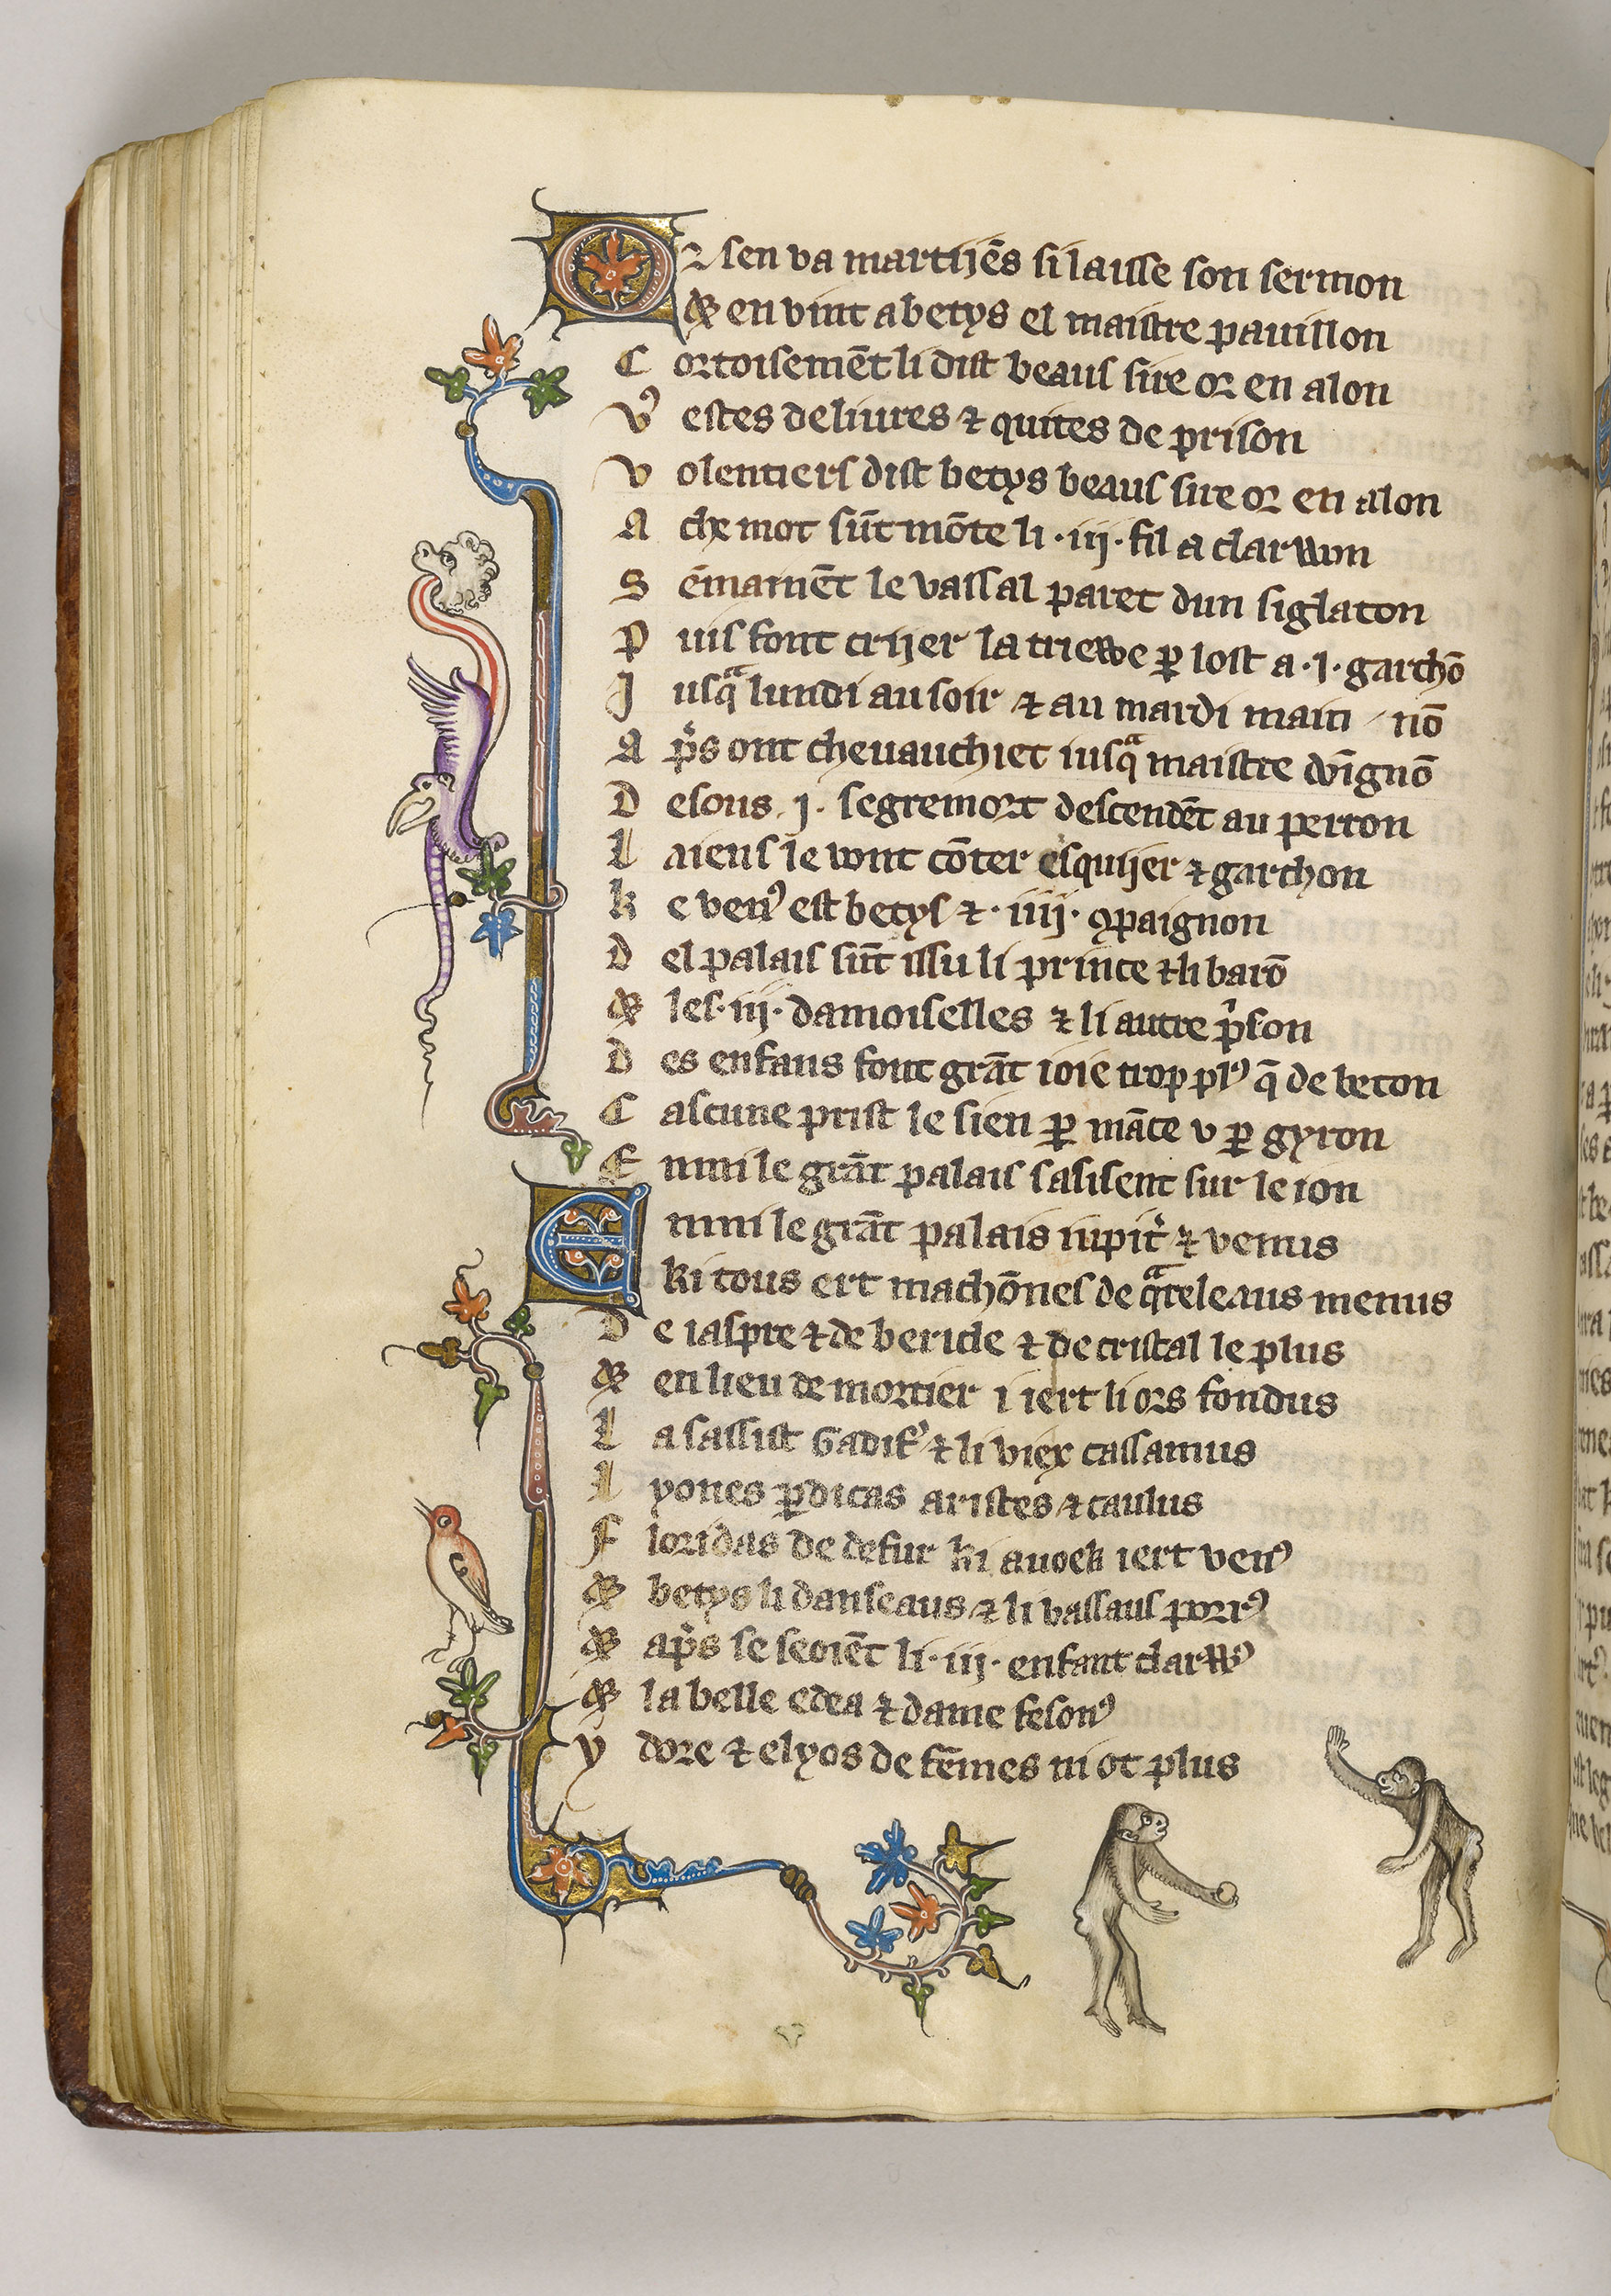 Oꝛ sen va martijēs si laisse son sermon
Et en vint a betys el maistre pauillon
Cortoisemēt li dist beaus sire oꝛ en alon
Vꝰ estes deliures ⁊ quites de prison
Volentiers dist betys beaus sire oꝛ en alon
A che mot sūt mōte li ·iij· fil a clarwon
Sēmainēt le vassal paret dun siglaton
Puis font crijer la triewe ꝑ lost a ·j· garchō
Jusqᵃ lundi au soir ⁊ au mardi main nō
Ap̓s ont cheuauchiet iusqᵃ maistre dōignō
Desous ·j· segremoꝛt descendēt au perron
Laiens le vont cōter esquijer ⁊ garchon
Ke venꝰ est betys ⁊ ·iiij· ꝯpaignon
Del palais sūt issu li prince ⁊ li barō
Et les ·iij· damoiselles ⁊ li autre p̓son
Des enfans font grāt ioie trop plꝰ q̄ de beton
Cascune prist le sien ꝑ māce v ꝑ gyron
Enmi le grāt palais sasisent sur le ion
Enmi le grāt palais iupit̓ ⁊ venus
Ki tous ert machōnes de qᵃreleaus menus
De iaspre ⁊ de bericle ⁊ de cristal le plus
Et en lieu de moꝛtier i iert li oꝛs fondus
La sassist Gadifꝰ ⁊ li viex cassamus
Lyones ꝑdicas aristes ⁊ caulus
Floꝛidas de defur ki auoek iert venꝰ
Et betys li danseaus ⁊ li vassaus poꝛrꝰ
Et ap̓s se seoiēt li ·iij· enfant clarwꝰ
Et la belle edea ⁊ dame fesonꝰ
Ydoꝛe ⁊ elyos de fēmes ni ot plus